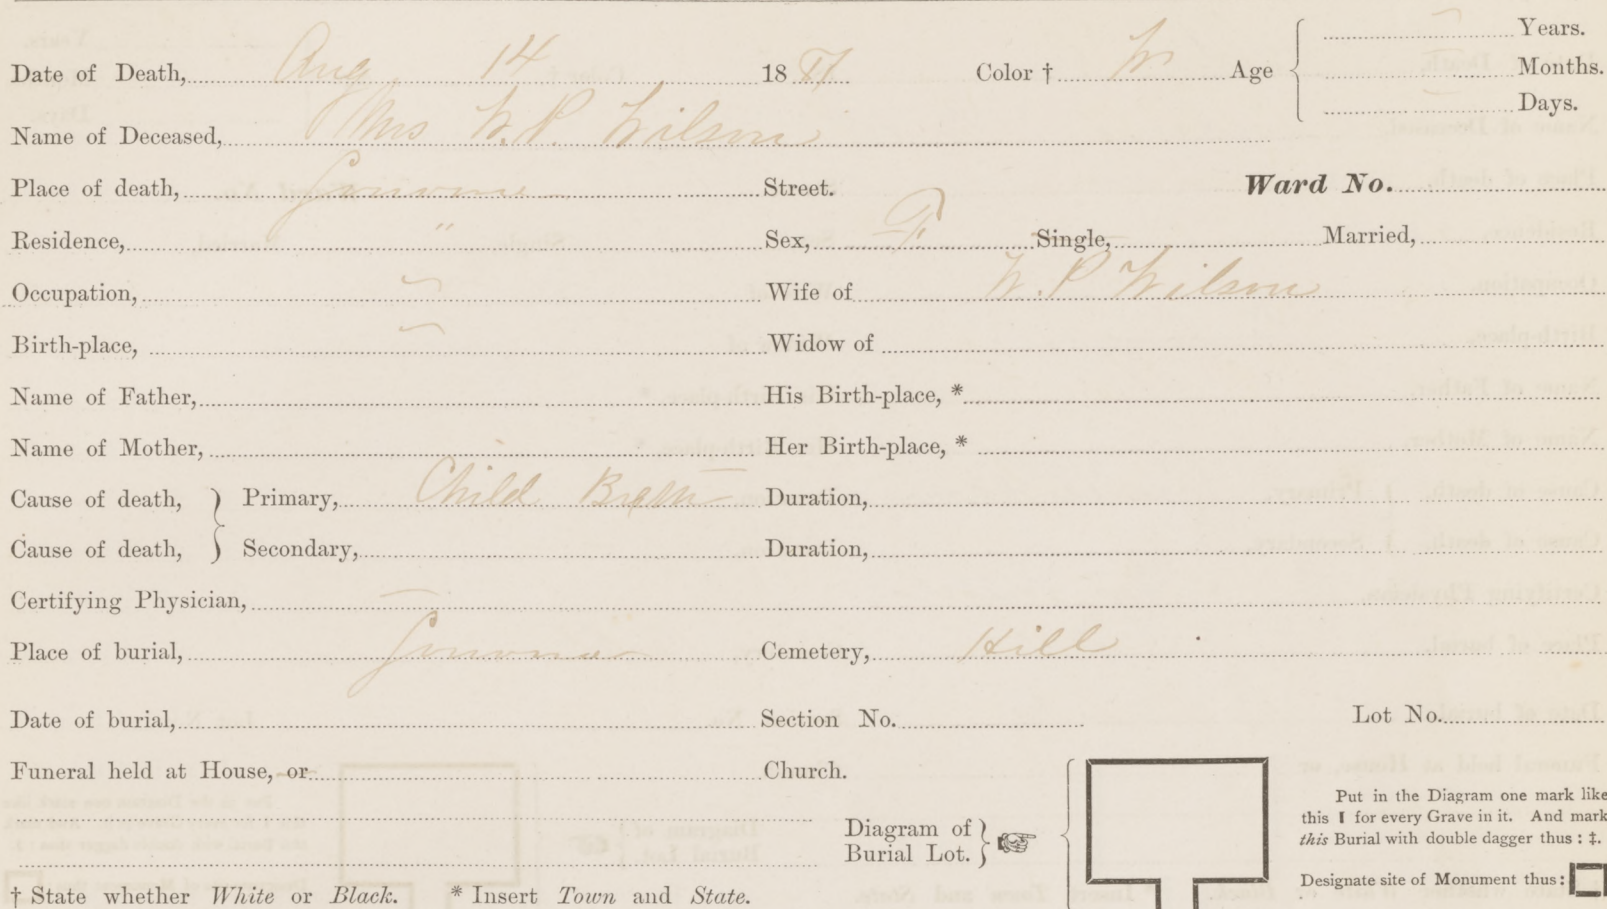 Date of Death, Aug 14 18 Color † W Age Years.
Months.
Days.
Name of Deceased, Mrs W. P. Wilson
Place of death, Street. Ward No.
Residence, " Sex, F. Single, Married,
Occupation, Wife of W. P Wilson
Birth-place, Widow of
Name of Father, His Birth-place, *
Name of Mother, Her Birth-place, *
Cause of death, } Primary, Child Birth Duration,
Cause of death, } Secondary, Duration,
Certifying Physician,
Place of burial, Cemetery, Hill
Date of burial, Section No. Lot No.
Funeral held at House, or Church.
Diagram of
Burial Lot. }
Put in the Diagram one mark like
this I for every Grave in it. And mark
this Burial with double dagger thus : ‡.
Designate site of Monument thus :
† State whether White or Black. * Insert Town and State.